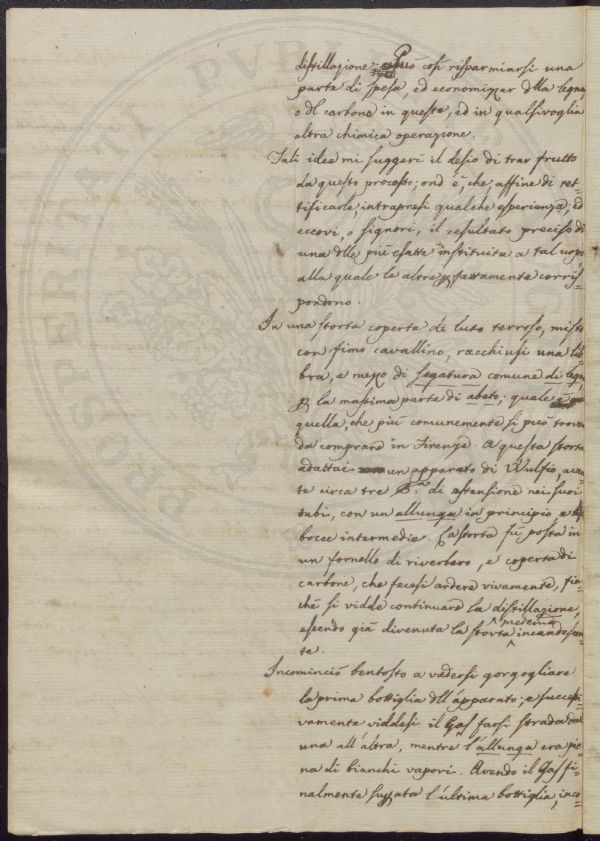 distillazione; Può così risparmiarsi una
parta di spesa, ed economizzar dlla legna
o dl carbone in questa, ed in qualsivoglia
altra chimica operazione.
Tali idee mi suggerì il desio di trar frutto
da questo processo; ond'è, che affine di ret=
tificarle, intrapresi qualche esperienza; ed
eccovi, o signori, il resultato preciso di
una dlle più esatte instituita a tal uopo
alla quale la altre esattamente corris=
pondono.
In una storta coperta di luto terroso, misto
con fimo cavallino, racchiusi una lib=
bra, e mezzo di segatura comune di legno
la massima parte di abeto; quale
quella, che più comunemente si può trova
da comprare in Firenze. A questa storta
adattai un apparato di Wulfio, aven
te circa tre di estensione nei suoi
tubi, con un allunga in principio, e
bocce intermedie. La storta fù posta in
un fornello di riverbero, e coperta di
carbone, che fecesi ardere vivamente, fin
chè si vidde continuare la distillazione,
essendo già divenuta la storta medema incandescen
te.
Incominciò bentosto a vedersi gorgogliare
la prima bottiglia dll'apparato; e successi=
vamente viddesi il Gas farsi strada dall
una all'altra, mentre l'allunga era pie=
na di bianchi vapori. Avendo il Gas fi=
nalmente l'ultima bottiglia, inco=